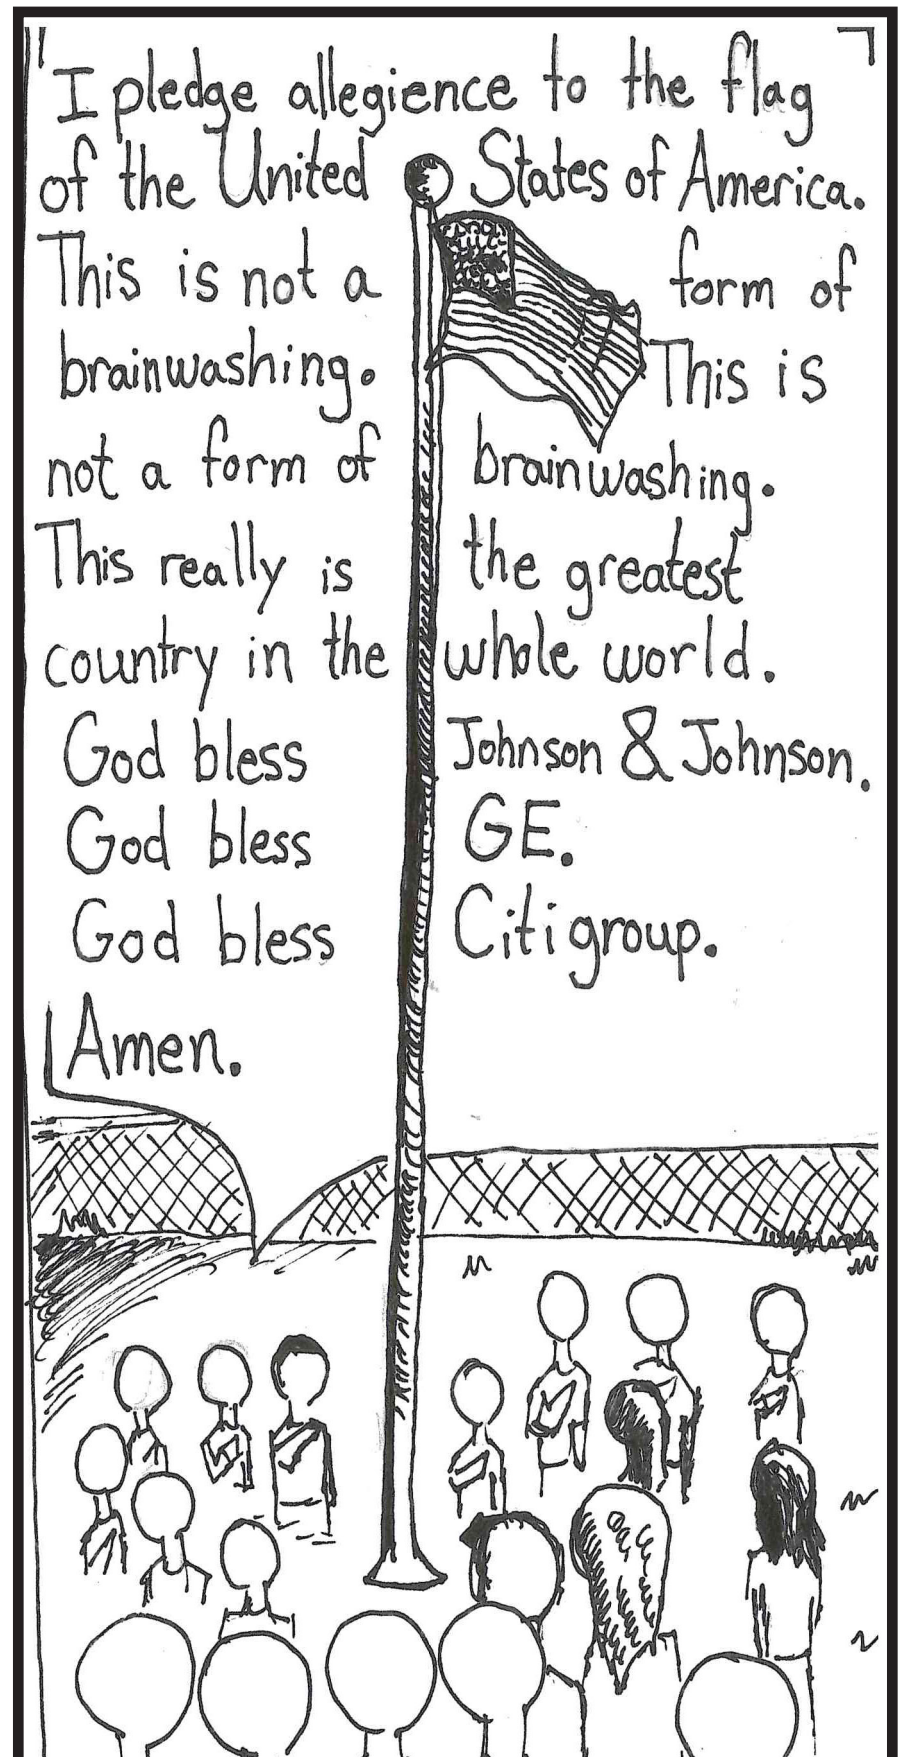 I pledge allegience to the flag
of the United States of America.
This is not a form of
brainwashing. This is
not a form of brainwashing.
This really is the greatest
country in the whole world.
God bless Johnson & Johnson.
God bless GE.
God bless Citigroup.
Amen.